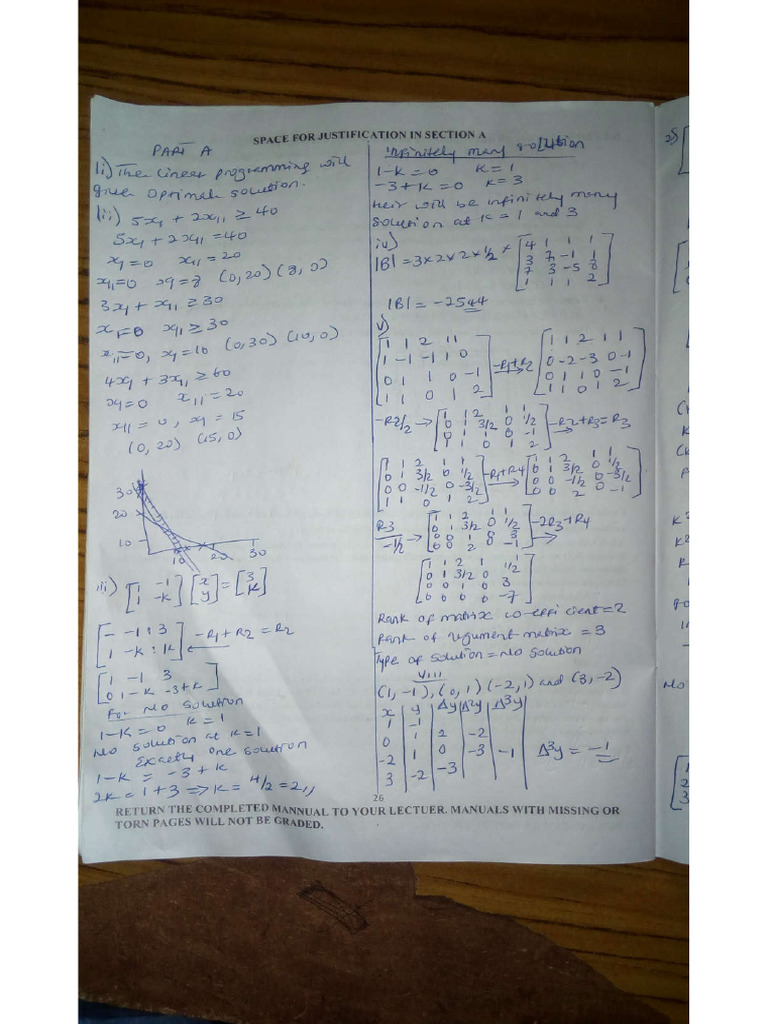 SPACE FOR JUSTIFICATION IN SECTION A
PART A
1i) The Linear programming will
give optimal solution.
1ii) 5x1 + 2x11 ≥ 40
5x1 + 2x11 = 40
x1=0 x11=20
x11=0 x1=8 (0,20) (8,0)
3x1 + x11 ≥ 30
x1=0 x11 ≥ 30
x11=0, x1=10 (0,30) (10,0)
4x1 + 3x11 ≥ 60
x1=0 x11=20
x11=0, x1=15
(0,20) (15,0)
30
20
10
10 20 30
iii) [1 -1] [x] = [3]
[1 -K] [y] [K]
[- -1 : 3] -R1 + R2 = R2
[1 -K : K]
[1 -1 3]
[0 1-K -3+K]
For No Solution
1-K=0 K=1
No solution at K=1
Exactly one solution
1-K = -3+K
2K = 1+3 => K = 4/2 = 2
Infinitely many solution
1-K=0 K=1
-3+K=0 K=3
Heir will be infinitely many
solution at K=1 and 3
iv)
|B|=3×2×2×1/2 × [4 1 1 1]
[3 7 -1 1]
[7 3 -5 8]
[1 1 1 2]
|B| = -2544
v)
[1 1 2 1 1] -R1+R2 [1 1 2 1 1]
[1 -1 -1 1 0] [0 -2 -3 0 -1]
[0 1 1 0 -1] [0 1 1 0 -1]
[1 1 0 1 2] [1 1 0 1 2]
-R2/2 → [1 1 2 1 1] -R2+R3=R3
[0 1 3/2 0 1/2]
[0 1 1 0 -1]
[1 1 0 1 2]
[1 1 2 1 1] -R1+R4 [1 1 2 1 1]
[0 1 3/2 0 1/2] [0 1 3/2 0 1/2]
[0 0 -1/2 0 -3/2] [0 0 -1/2 0 -3/2]
[1 1 0 1 2] [0 0 2 0 -1]
R3/-1/2 → [1 1 2 1 1] -2R3+R4
[0 1 3/2 0 1/2]
[0 0 0 0 3]
[0 0 2 0 -1]
[1 1 2 1 1]
[0 1 3/2 0 1/2]
[0 0 1 0 3]
[0 0 0 0 -7]
Rank of matrix co-efficient=2
Rank of argument matrix = 3
Type of solution = No solution
VIII
(1,-1), (0,1) (-2,1) and (3,-2)
x y Δy Δ²y Δ³y
1 -1
0 1 2 -2
-2 1 0 -3 -1 Δ³y = -1
3 -2 -3
26
RETURN THE COMPLETED MANNUAL TO YOUR LECTUER. MANUALS WITH MISSING OR
TORN PAGES WILL NOT BE GRADED.